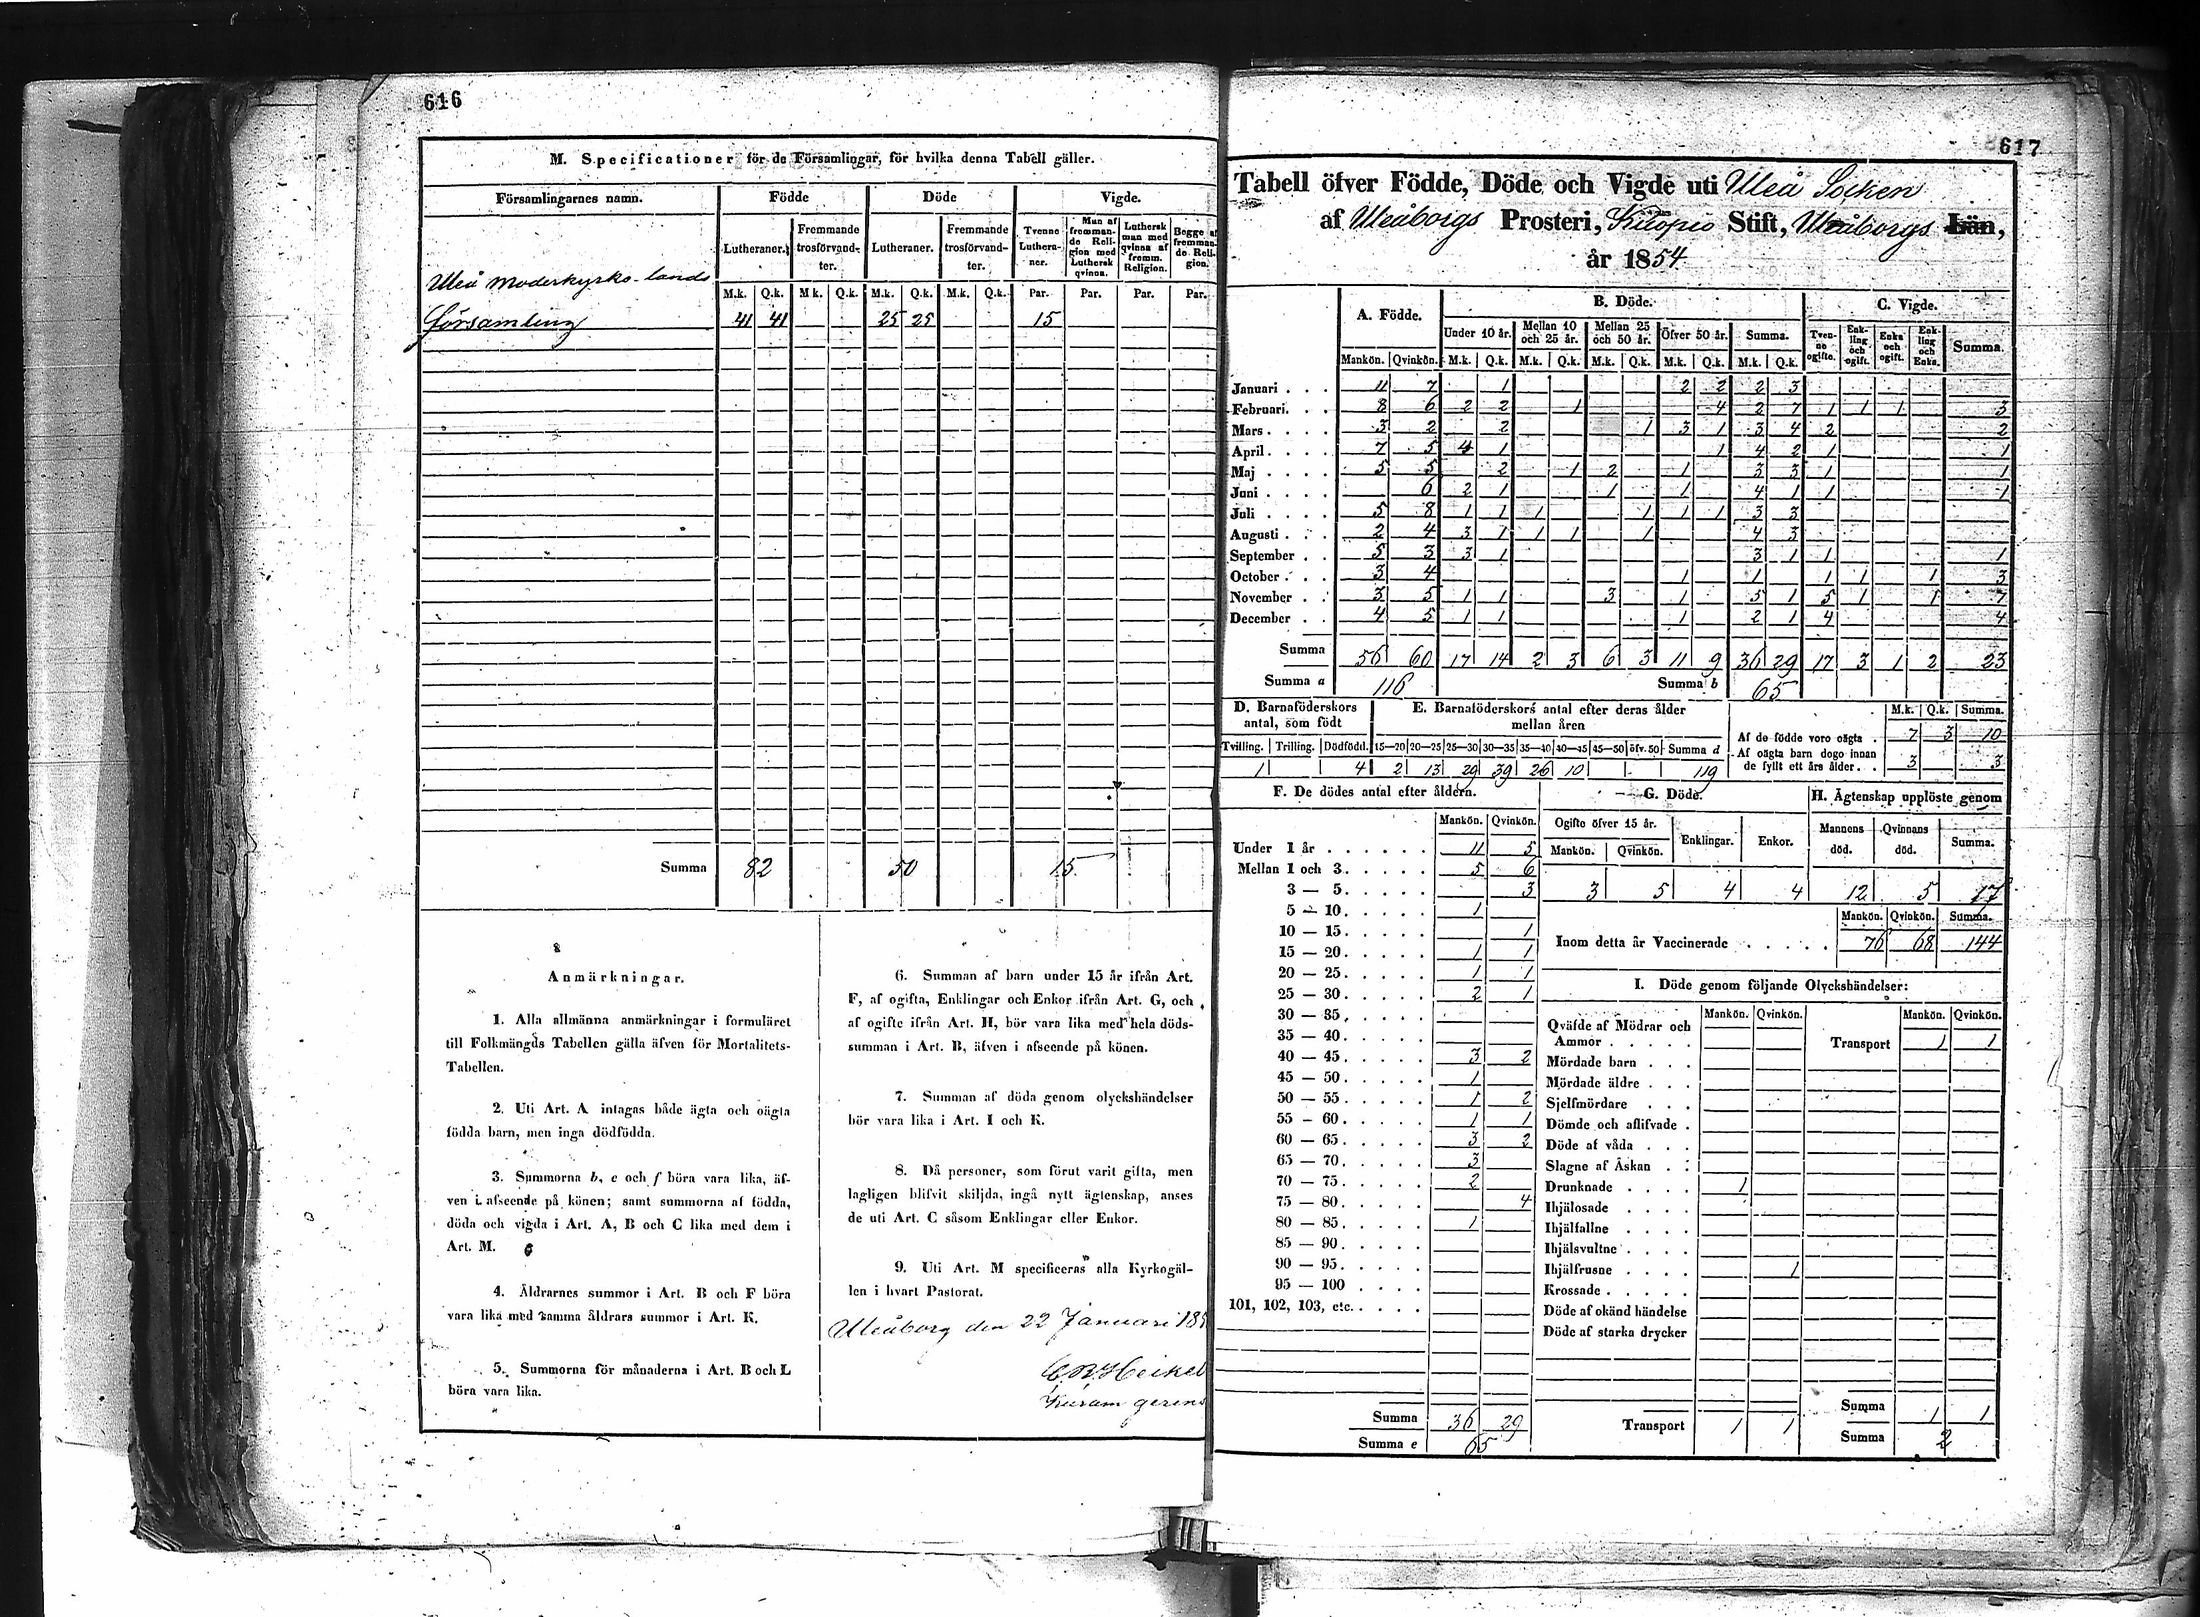 616
M. Specificationer för de Församlingar, för hvilka denna Tabell gäller.
Församlingarnes namn. Födde Döde Vigde.
Lutheraner. Fremmande trosförvandter. Lutheraner. Fremmande trosförvandter. Tvenne Lutheraner. Man af fremmande Religion med Luthersk qvinna. Luthersk man med qvinna af fremm. Religion. Begge af fremmande Religion.
M.k. Q.k. M.k. Q.k. M.k. Q.k. M.k. Q.k. Par. Par. Par. Par.
Uleå Moderkyrko-lands
församling 41 41 25 25 15
Summa 82 50 15
Anmärkningar.
1. Alla allmänna anmärkningar i formuläret
till Folkmängds Tabellen gälla äfven för Mortalitets-
Tabellen.
2. Uti Art. A intagas både ägta och oägta
födda barn, men inga dödfödda.
3. Summorna b, e och f böra vara lika, äf-
ven i afseende på könen; samt summorna af födda,
döda och vigda i Art. A, B och C lika med dem i
Art. M.
4. Åldrarnes summor i Art. B och F böra
vara lika med samma åldrars summor i Art. K.
5. Summorna för månaderna i Art. B och L
böra vara lika.
6. Summan af barn under 15 år ifrån Art.
F, af ogifta, Enklingar och Enkor ifrån Art. G, och
af ogifte ifrån Art. H, bör vara lika med hela döds-
summan i Art. B, äfven i afseende på könen.
7. Summan af döda genom olyckshändelser
bör vara lika i Art. I och K.
8. Då personer, som förut varit gifta, men
lagligen blifvit skiljda, ingå nytt ägtenskap, anses
de uti Art. C såsom Enklingar eller Enkor.
9. Uti Art. M specificeras alla Kyrkogäl-
len i hvart Pastorat.
Uleåborg den 22 Januari 185
C R Heikel
Curam gerens
617
Tabell öfver Födde, Döde och Vigde uti Uleå Socken
af Uleåborgs Prosteri, Kuopio Stift, Uleåborgs Län,
år 1854
A. Födde. B. Döde. C. Vigde.
Under 10 år. Mellan 10 och 25 år. Mellan 25 och 50 år. Öfver 50 år. Summa. Tvenne ogifte. Enkling och ogift. Enka och ogift. Enkling och Enka. Summa.
Mankön. Qvinkön. M.k. Q.k. M.k. Q.k. M.k. Q.k. M.k. Q.k. M.k. Q.k.
Januari . . . 11 7 1 2 2 2 3
Februari. . . 8 6 2 2 1 4 2 7 1 1 1 3
Mars . . . . 3 2 2 1 3 1 3 4 2 2
April . . . . 7 5 4 1 1 4 2 1 1
Maj . . . . 5 5 2 1 2 1 3 3 1 1
Juni . . . . 6 2 1 1 1 4 1 1 1
Juli . . . . 5 8 1 1 1 1 1 1 3 3
Augusti . . . 2 4 3 1 1 1 1 4 3
September . . 5 3 3 1 3 1 1 1
October . . . 3 4 1 1 1 1 1 3
November . . 3 5 1 1 3 1 5 1 5 1 1 7
December . . 4 5 1 1 1 2 1 4 4
Summa 56 60 17 14 2 3 6 3 11 9 36 29 17 3 1 2 23
Summa a 116 Summa b 65
D. Barnaföderskors antal, som födt
Tvilling. Trilling. Dödfödd.
1 4
E. Barnaföderskors antal efter deras ålder mellan åren
15—20 20—25 25—30 30—35 35—40 40—45 45—50 öfv. 50 Summa d
2 13 29 39 26 10 119
M.k. Q.k. Summa.
Af de födde voro oägta . 7 3 10
Af oägta barn dogo innan
de fyllt ett års ålder . . 3 3
F. De dödes antal efter åldern.
Mankön. Qvinkön.
Under 1 år . . . . . . 11 5
Mellan 1 och 3 . . . . . 5 6
3 — 5 . . . . . 3
5 — 10 . . . . . 1
10 — 15 . . . . . 1
15 — 20 . . . . . 1 1
20 — 25 . . . . . 1 1
25 — 30 . . . . . 2 1
30 — 35 . . . . .
35 — 40 . . . . .
40 — 45 . . . . . 3 2
45 — 50 . . . . . 1
50 — 55 . . . . . 1 2
55 — 60 . . . . . 1 1
60 — 65 . . . . . 3 2
65 — 70 . . . . . 3
70 — 75 . . . . . 2
75 — 80 . . . . . 4
80 — 85 . . . . . 1
85 — 90 . . . . .
90 — 95 . . . . .
95 — 100 . . . .
101, 102, 103, etc. . . . .
Summa 36 29
Summa e 65
G. Döde.
Ogifte öfver 15 år. Enklingar. Enkor.
Mankön. Qvinkön.
3 5 4 4
H. Ägtenskap upplöste genom
Mannens död. Qvinnans död. Summa.
12 5 17
Mankön. Qvinkön. Summa.
Inom detta år Vaccinerade . . . . . 76 68 144
I. Döde genom följande Olyckshändelser:
Mankön. Qvinkön. Mankön. Qvinkön.
Qväfde af Mödrar och
Ammor . . . . . Transport 1 1
Mördade barn . . .
Mördade äldre . . .
Sjelfmördare . . .
Dömde och aflifvade .
Döde af våda . . .
Slagne af Åskan . .
Drunknade . . . . 1
Ihjälosade . . . .
Ihjälfallne . . . .
Ihjälsvultne . . . .
Ihjälfrusne . . . . 1
Krossade . . . . .
Döde af okänd händelse
Döde af starka drycker
Summa 1 1
Transport 1 1 Summa 2